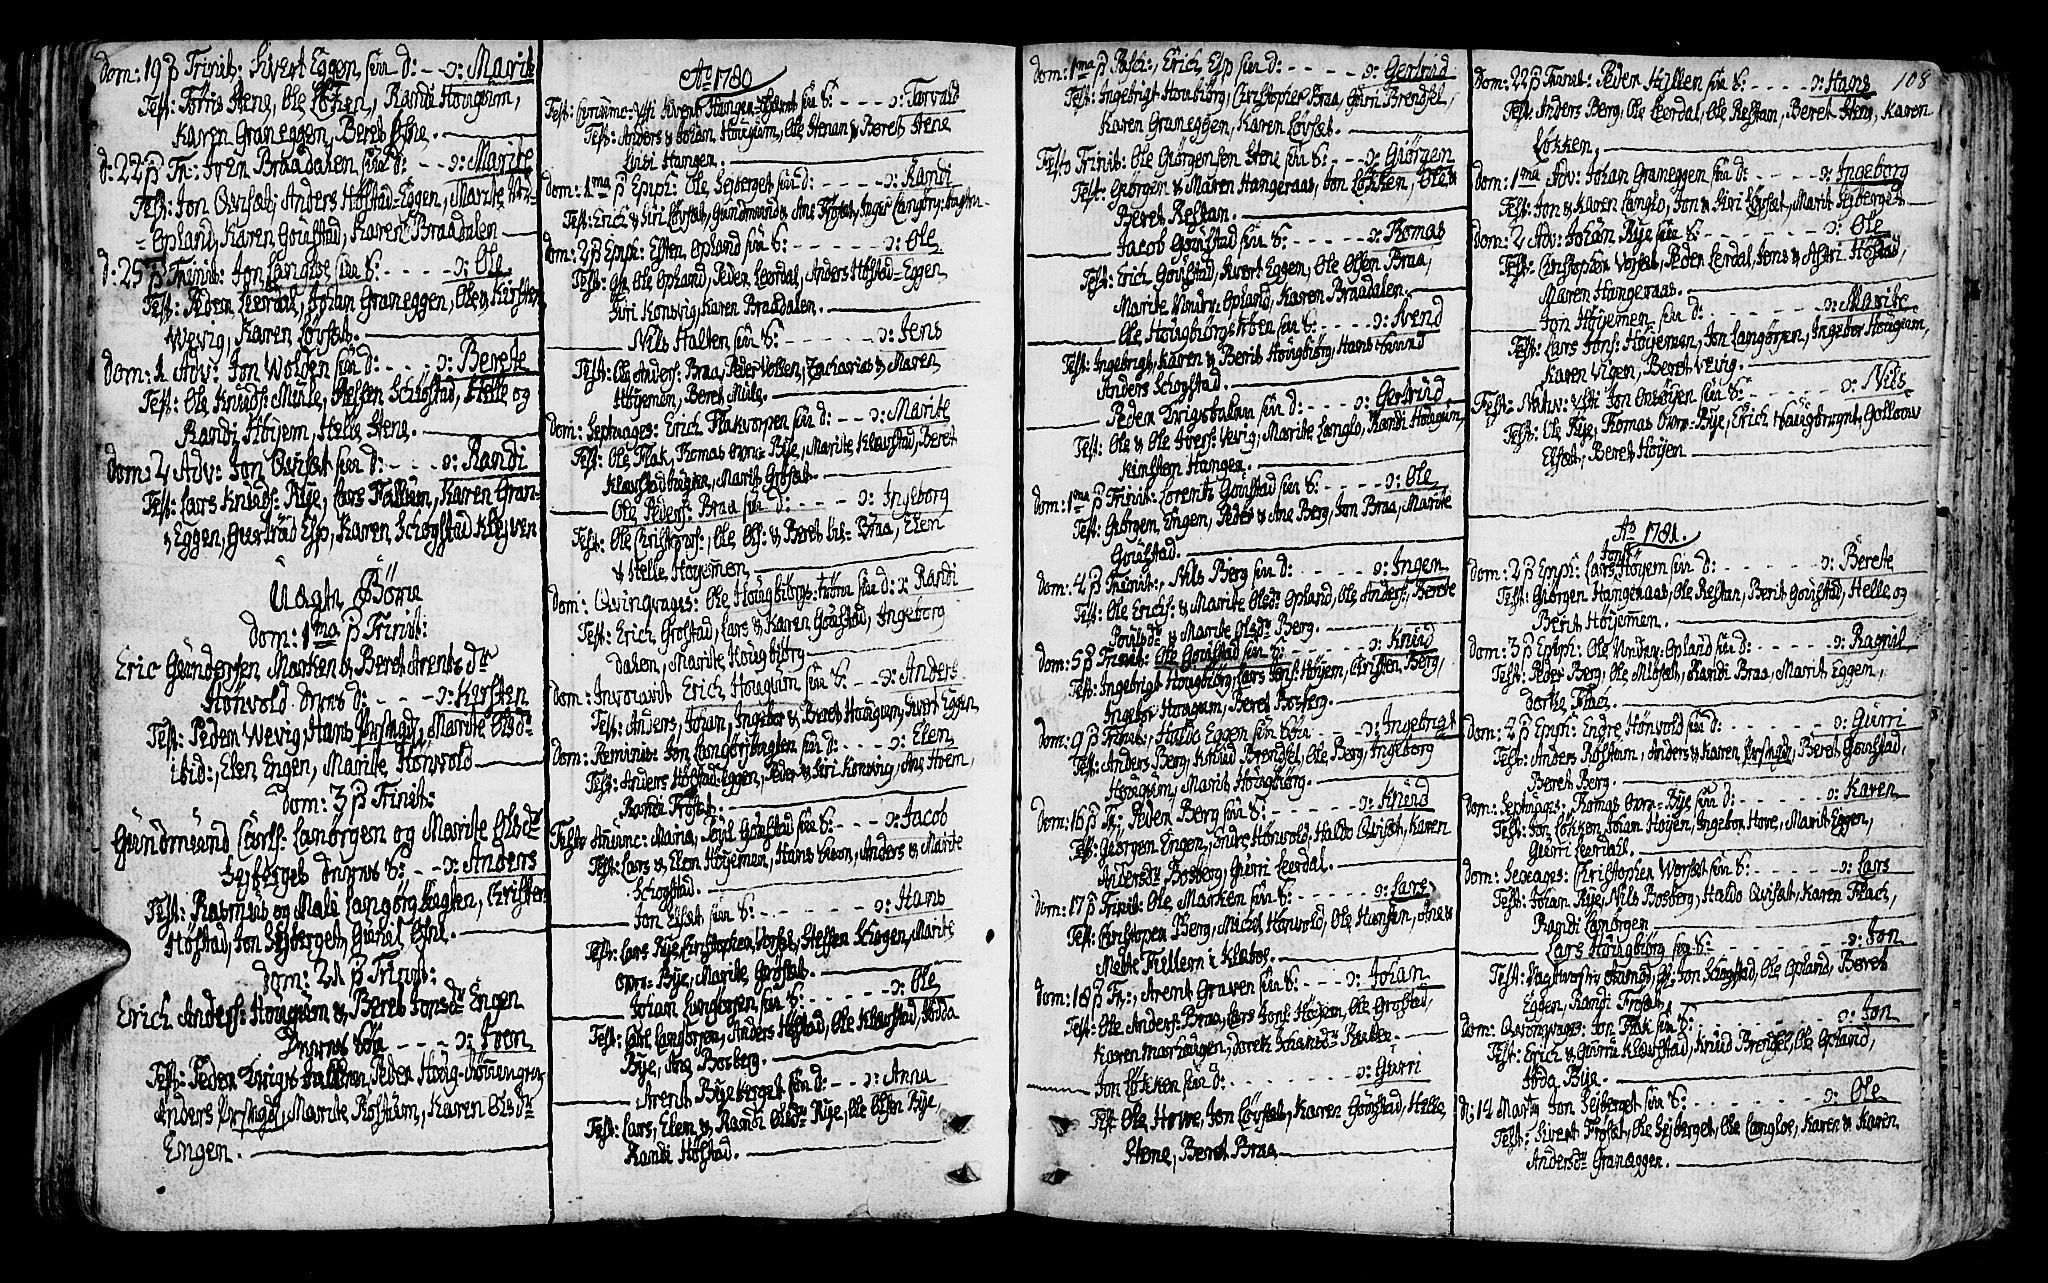 dom: 19 p Trinit: Sivert Eggen sin d: - - ɔ: Marit
Test: Tørris Stene, Ole Løkken, Randi Hougum,
Karen Graneggen, Beret Stne.
d: 22 p Tr: Iven Braadalen sin d: - - ɔ: Marite
Test: Jon Qvisat, Anders Høstad-Eggen, Marite
Opland, Karen Goustad, Karen Braadalen
d: 25 p Trinit: Jon Langloe sin S: - - - - - ɔ: Ole
Test: Peder Leerdal, Johan Graneggen, Ole Kirsten
Wevig, Karen Løvset.
dom: 1 Adv: Jon Wolden sin d: - - - ɔ: Berete
Test: Ole Knuds: Mule, Steffen Schøstad, Helle og
Randi Høyem, Helle Stene.
dom: 2 Adv: Jon Qvisat sin d: - - - ɔ: Randi
Test: Lars Knuds: Rye, Lars Fallum, Karen Gran-
Eggen, Gurtrud Esp, Karen Schogstad Kleiven
Uagte Børn
dom: 1ma p Trinit:
Eric Gundersen Marken & Beret Arents dtr
Hønvold deres d: - - - ɔ: Kirsten
Test: Peder Wevig, Hans Prsmod, Marite Olsdr
ibid:, Elen Engen, Marite Hønvold
dom: 3 p Trinit:
Gundmund Larss: Lanørgen og Marite Olsdr
Seyberget deres S: - - ɔ: Anders
Test: Rasmus og Mali Langørg Hagten, Christen
Høstad, Jon Seyberget, Gunel Stne.
dom: 21 p Trinit:
Erich Anders: Hougum & Beret Jonsdr Engen
Deres Sön - - - - ɔ: Iven
Test: Peder Drigstaalen, Peder Houg-
Anders Prsmod, Marite Rostum, Karen Olsdr
Engen.
Ao 1780
Fest: Circumc- Usti Sivert Hangen Hans S: - - - ɔ: Torvald
Test: Anders & Johan Hougum, Ole Stenan & Beret Stene
Lisbi Hangen.
dom: 1ma p Epiph: Ole Seyberget sin d: - - - - ɔ: Randi
Test: Erich & Siri Løvset, Gundmund & Ane Frøset, Inger Langørg-
dom: 2 p Epiph: Esten Opland sin S: - - - - - ɔ: Ole
Test: Ole Opland, Peder Leerdal, Anders Høstad-Eggen
Siri Konsvig, Karen Braadalen.
Nils Halten sin S: - - - - - - ɔ: Jens
Test: Ole Anders: Braa, Peder Volden, Zacharias & Maren
Høyemen, Beret Mule.
dom: Septuages: Erich Flakvorpen sin d: - - ɔ: Marite
Test: Ole Flak, Thomas Øvre-Bye, Marite Klæstad, Beret
Klæstadbakken, Marit Grøset.
Ole Peders: Braa sin d: - - - - ɔ: Ingeborg
Test: Ole Christens:, Ole Ols: & Beret Braa, Elen
& Helle Høyemen.
dom: Qvinqvages: Ole Hougbiørgstrøen sin d: ɔ: Randi
Test: Erich Grøstad, Lars & Karen Goustad, Ingeborg
Dalen, Marite Hougbiørg
dom: Invocavit Erich Hougum sin S: - - ɔ: Anders
Test: Anders, Johan, Ingebor & Beret Hougum, Sivert Eggen
dom: Reminis: Jon Langørsbagten sin d: - - - ɔ: Elen
Test: Anders Høstad-Eggen, Peder & Siri Konsvig, Ane Hoem,
Randi Frøset.
Fest: Anunc: Maria, Poul Goustad sin S: - - - ɔ: Jacob
Test: Lars & Elen Høyemen, Hans Braa, Anders & Marite
Schogstad.
Jon Elset sin S: - - - - - - - ɔ: Hans
Test: Lars Rye, Christopher Vorset, Steffen Schogen, Marite
Øvre-Bye, Marite Grøset.
Johan Langørgen sin S: - - - - - - ɔ: Ole
Test: Carl Langørgen, Anders Høstad, Ole Klæstad, Jødda
Bye, Ane Bosberg.
Arent Byeberget sin d: - - ɔ: Anna
Test: Lars, Elen & Randi Olsdr Rye, Ole Olsen Rye,
Randi Høstad.
dom: 1ma p Pasch:, Erich Esp sin d: - - - - - ɔ: Gertrud
Test: Ingebrigt Houbiørg, Christopher Braa, Guri Brendsel,
Karen Graneggen, Karen Løvset.
Festo Trinit: Ole Giørgensen Stene sin S: - - - ɔ: Giørgen
Test: Giørgen & Maren Hangeraas, Jon Løkken, Ole &
Beret Restan.
Jacob Goustad sin S: - - - - - - - ɔ: Thomas
Test: Erich Goustad, Sivert Eggen, Ole Olsen Braa,
Marite Opland, Karen Braadalen.
Ole Hougbiørgstrøen sin S: - - - - - ɔ: Svend
Test: Ingebrigt, Karen & Berit Hougbiørg, Hans
Anders Schogstad.
Peder Drigstaalen sin d: - - - - - ɔ: Gertrud
Test: Ole & Ole Ivers: Wevig, Marite Langlo, Randi Hougum,
Kirsten Hangen.
dom: 1ma p Trinit: Lorentz Goustad sin S: - - - - ɔ: Ole
Test: Giørgen Engen, Peder & Ane Berg, Jon Braa, Marite
Goustad.
dom: 4 p Trinit:, Nils Berg sin d: - - - - - - ɔ: Ingen
Test: Ole Erichs: & Marite Olsdr Opland, Ole Anders:, Berete
Poulsdr & Marite Olsdr Berg.
dom: 5 p Trinit: Ole Goustad sin S: - - - - - - ɔ: Knud
Test: Ingebrigt Hougbiørg, Lars Jons: Høyem, Christen Berg,
Ingebor Hougum, Beret Bosberg.
dom: 9 p Trinit:, Haldo Eggen sin Søn - - - - ɔ: Ingebrigt
Test: Anders Berg, Knud Brendsel, Ole Berg, Ingeborg
Hougum, Marit Hougbiørg.
dom: 16 p Tr:, Peder Berg sin S: - - - - - - ɔ: Knud
Test: Giørgen Engen, Endre Hønvold, Haldo Qvisat, Karen
Andersdr Bosberg, Gurri Leerdal.
dom: 17 p Trinit: Ole Marken sin S: - - - - - ɔ: Lars
Test: Christopen Berg, Michel Hønvold, Ole Hansen, Ane &
Mette Tiellern i Klæboe.
dom: 18 p Tr:, Arent Graven sin S: - - - - ɔ: Johan
Test: Ole Anders: Braa, Lars Jons: Høyem, Ole Grøstad,
Karen Marhaugen, Doreth Johansdr
Jon Løkken sin d: - - - - - - - - ɔ: Gurri
Test: Ole Howe, Jon Løvset, Karen Goustad, Helle
Stene, Beret Braa
108
dom: 22 p Trinit: Peder Killen sin S: - - - - ɔ: Hans
Test: Anders Berg, Ole Leerdal, Ole Restan, Beret Sterg, Karen
Løkken.
dom: 1ma Adv: Johan Graneggen sin d: - - - - - - ɔ: Ingeborg
Test: Jon & Karen Langlo, Jon & Siri Løvset, Marit Seyberget
dom: 2 Adv: Johan Rye sin S: - - - - - - - - ɔ: Ole
Test: Christopher Vorset, Peder Leerdal, Jens & Aseri Høstad,
Maren Hangeraas.
Jon Høyemen sin d: - - - - - - - ɔ: Marite
Test: Lars Jons: Høyemen, Jon Langørgen, Ingebor Hougum,
Karen Vigen, Beret Wevig.
Fest: Nativ: Usti Jon Østøyen sin S: - - - - - ɔ: Nils
Test: Ole Rye, Thomas Øvre-Bye, Erich Haugbrugt, Golloov
Elset, Beret Høyem
Ao 1781.
Jons:
dom: 2 p Epiph: Lars Høyem sin d: - - - - - ɔ: Berete
Test: Giørgen Hangeraas, Ole Restan, Berit Goustad, Helle og
Berit Høyemen.
dom: 3 p Epiph: Ole Opland sin d: - - - - - ɔ: Ragnil
Test: Peder Berg, Ole Mosset, Randi Braa, Marit Eggen,
Dorte Flach.
dom: 2 p Epiph: Endre Hønvold sin d: - - - - - - ɔ: Gurri
Test: Anders Rostum, Anders & Karen Prsmod, Beret Goustad,
Beret Berg.
dom: Septuages: Thomas Øvre-Bye sin d: - - - - - - ɔ: Karen
Test: Jon Løkken, Johan Høyen, Ingebor Hove, Marit Eggen,
Gurri Leerdall.
dom: Sexages: Christopher Worset sin S: - - - - - - ɔ: Lars
Test: Johan Rye, Nils Bosberg, Haldo Qvisat, Karen Flach,
Randi Lanørgen
Lars Hougbiørg sin S: - - - - - - - ɔ: Jon
Test: Jon Schogstad, Ole Opland, Beret
Eggen, Randi Frøset.
dom: Qvinqvages: Jon Flak sin S: - - - - - - - ɔ: Jon
Test: Erich & Gurru Klæstad, Knud Brendsel, Ole Opland,
Jøda Bye.
d: 14 Marty Jon Seyberget sin S: - - - - - - - ɔ: Ole
Test: Sivert Frøset, Ole Seyberget, Ole Langloe, Karen & Karen
Andersdr Graneggen.